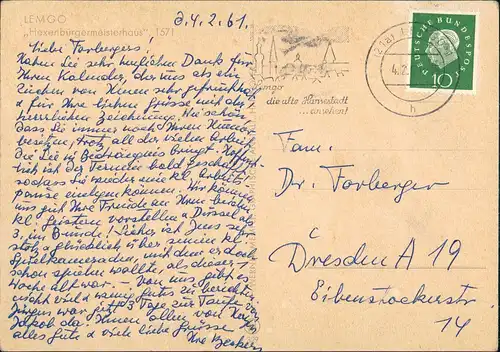 LEMGO
„Hexenbürgermeisterhaus" 1571
d. 4.2.61.
Liebe Forbergers!
Haben Sie sehr herzlichen Dank für
Ihren Kalender, der uns als ein
Zeichen von Ihnen sehr gefreut hat
& für Ihre lieben Grüsse mit der
herrlichen Zeichnung. Wie schön,
dass Sie immer noch Ihren Humor
besitzen, trotz all der vielen Arbeit
die Sie in Bedrängnis bringt. Hoffent-
lich ist der Termin bald geschafft,
sodass Sie wieder eine kl. Arbeits-
pause einlegen können. Wir können
uns gut Ihre Freude an Ihren beiden
kl. Geistern vorstellen &
3, im Bunde! Sicher ist Jens sehr
stolz & glücklich über seinen kl.
Spielkameraden, mit dem er doch
schon spielen wollte, als dieser
Woche alt war. – Von uns gibt es
nicht viel
war mit 3 Tage zur Taufe von
Jakob da. Ihnen allen von Herzen
alles Gute & viele liebe Grüsse
Ihre
Lemgo
die alte Hansestadt
...ansehen!
(21a)
4.2.
h
DEUTSCHE BUNDESPOST
10
Fam.
Dr. Forberger
Dresden A 19
Eibenstockerstr.
14